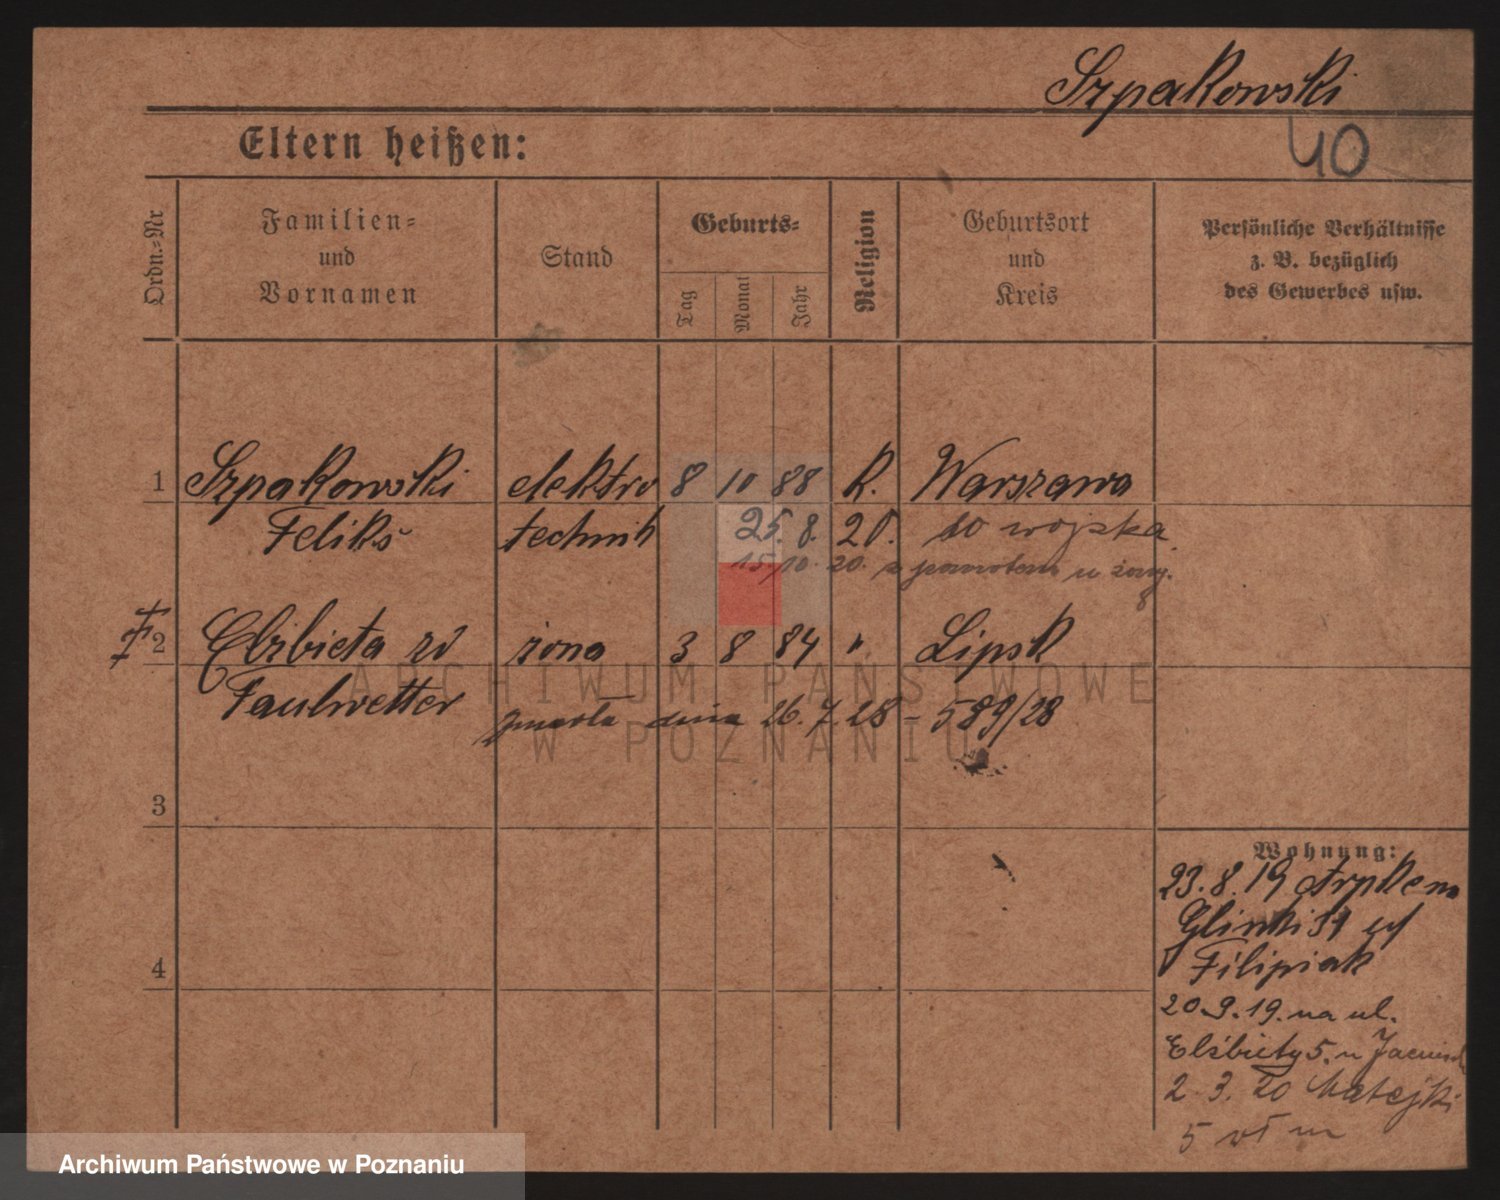 Szpakowski
40
Eltern heißen:
Ordn.=Nr
Familien=
und
Vornamen
Stand
Geburts=
Tag
Monat
Jahr
Religion
Geburtsort
und
Kreis
Persönliche Verhältnisse
z. B. bezüglich
des Gewerbes usw.
1 Szpakowski elektro 8 10 88 R. Warszawa
Feliks technik 25. 8. 20. do wojska
15/10. 20. z powrotem
2 Elżbieta żona 3 8 84 " Lipsk
Faulwetter zmarła dnia 26. 7. 28 - 589/28
3
4
Wohnung:
23. 8. 19
Filipiak
20.9.19. na ul.
Elżbiety 5.
2. 3. 20 Matejki
5
ARCHIWUM PAŃSTWOWE
W POZNANIU
Archiwum Państwowe w Poznaniu